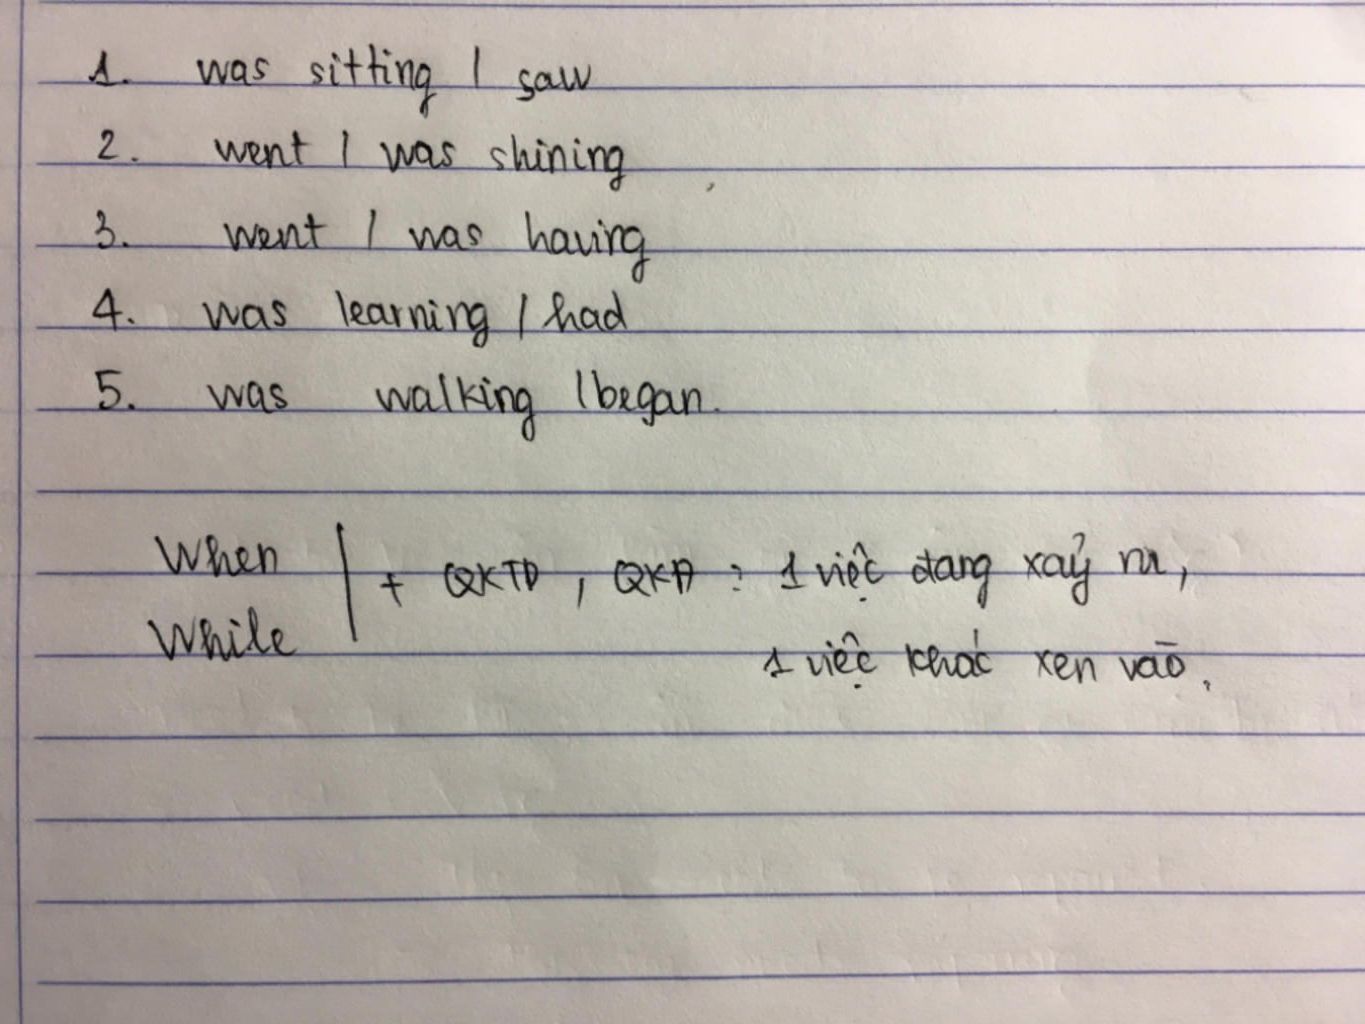 1. was sitting / saw
2. went / was shining
3. went / was having
4. was learning / had
5. was walking / began.
When
+ QKTD, QKĐ : 1 việc đang xảy ra,
While
1 việc khác xen vào.